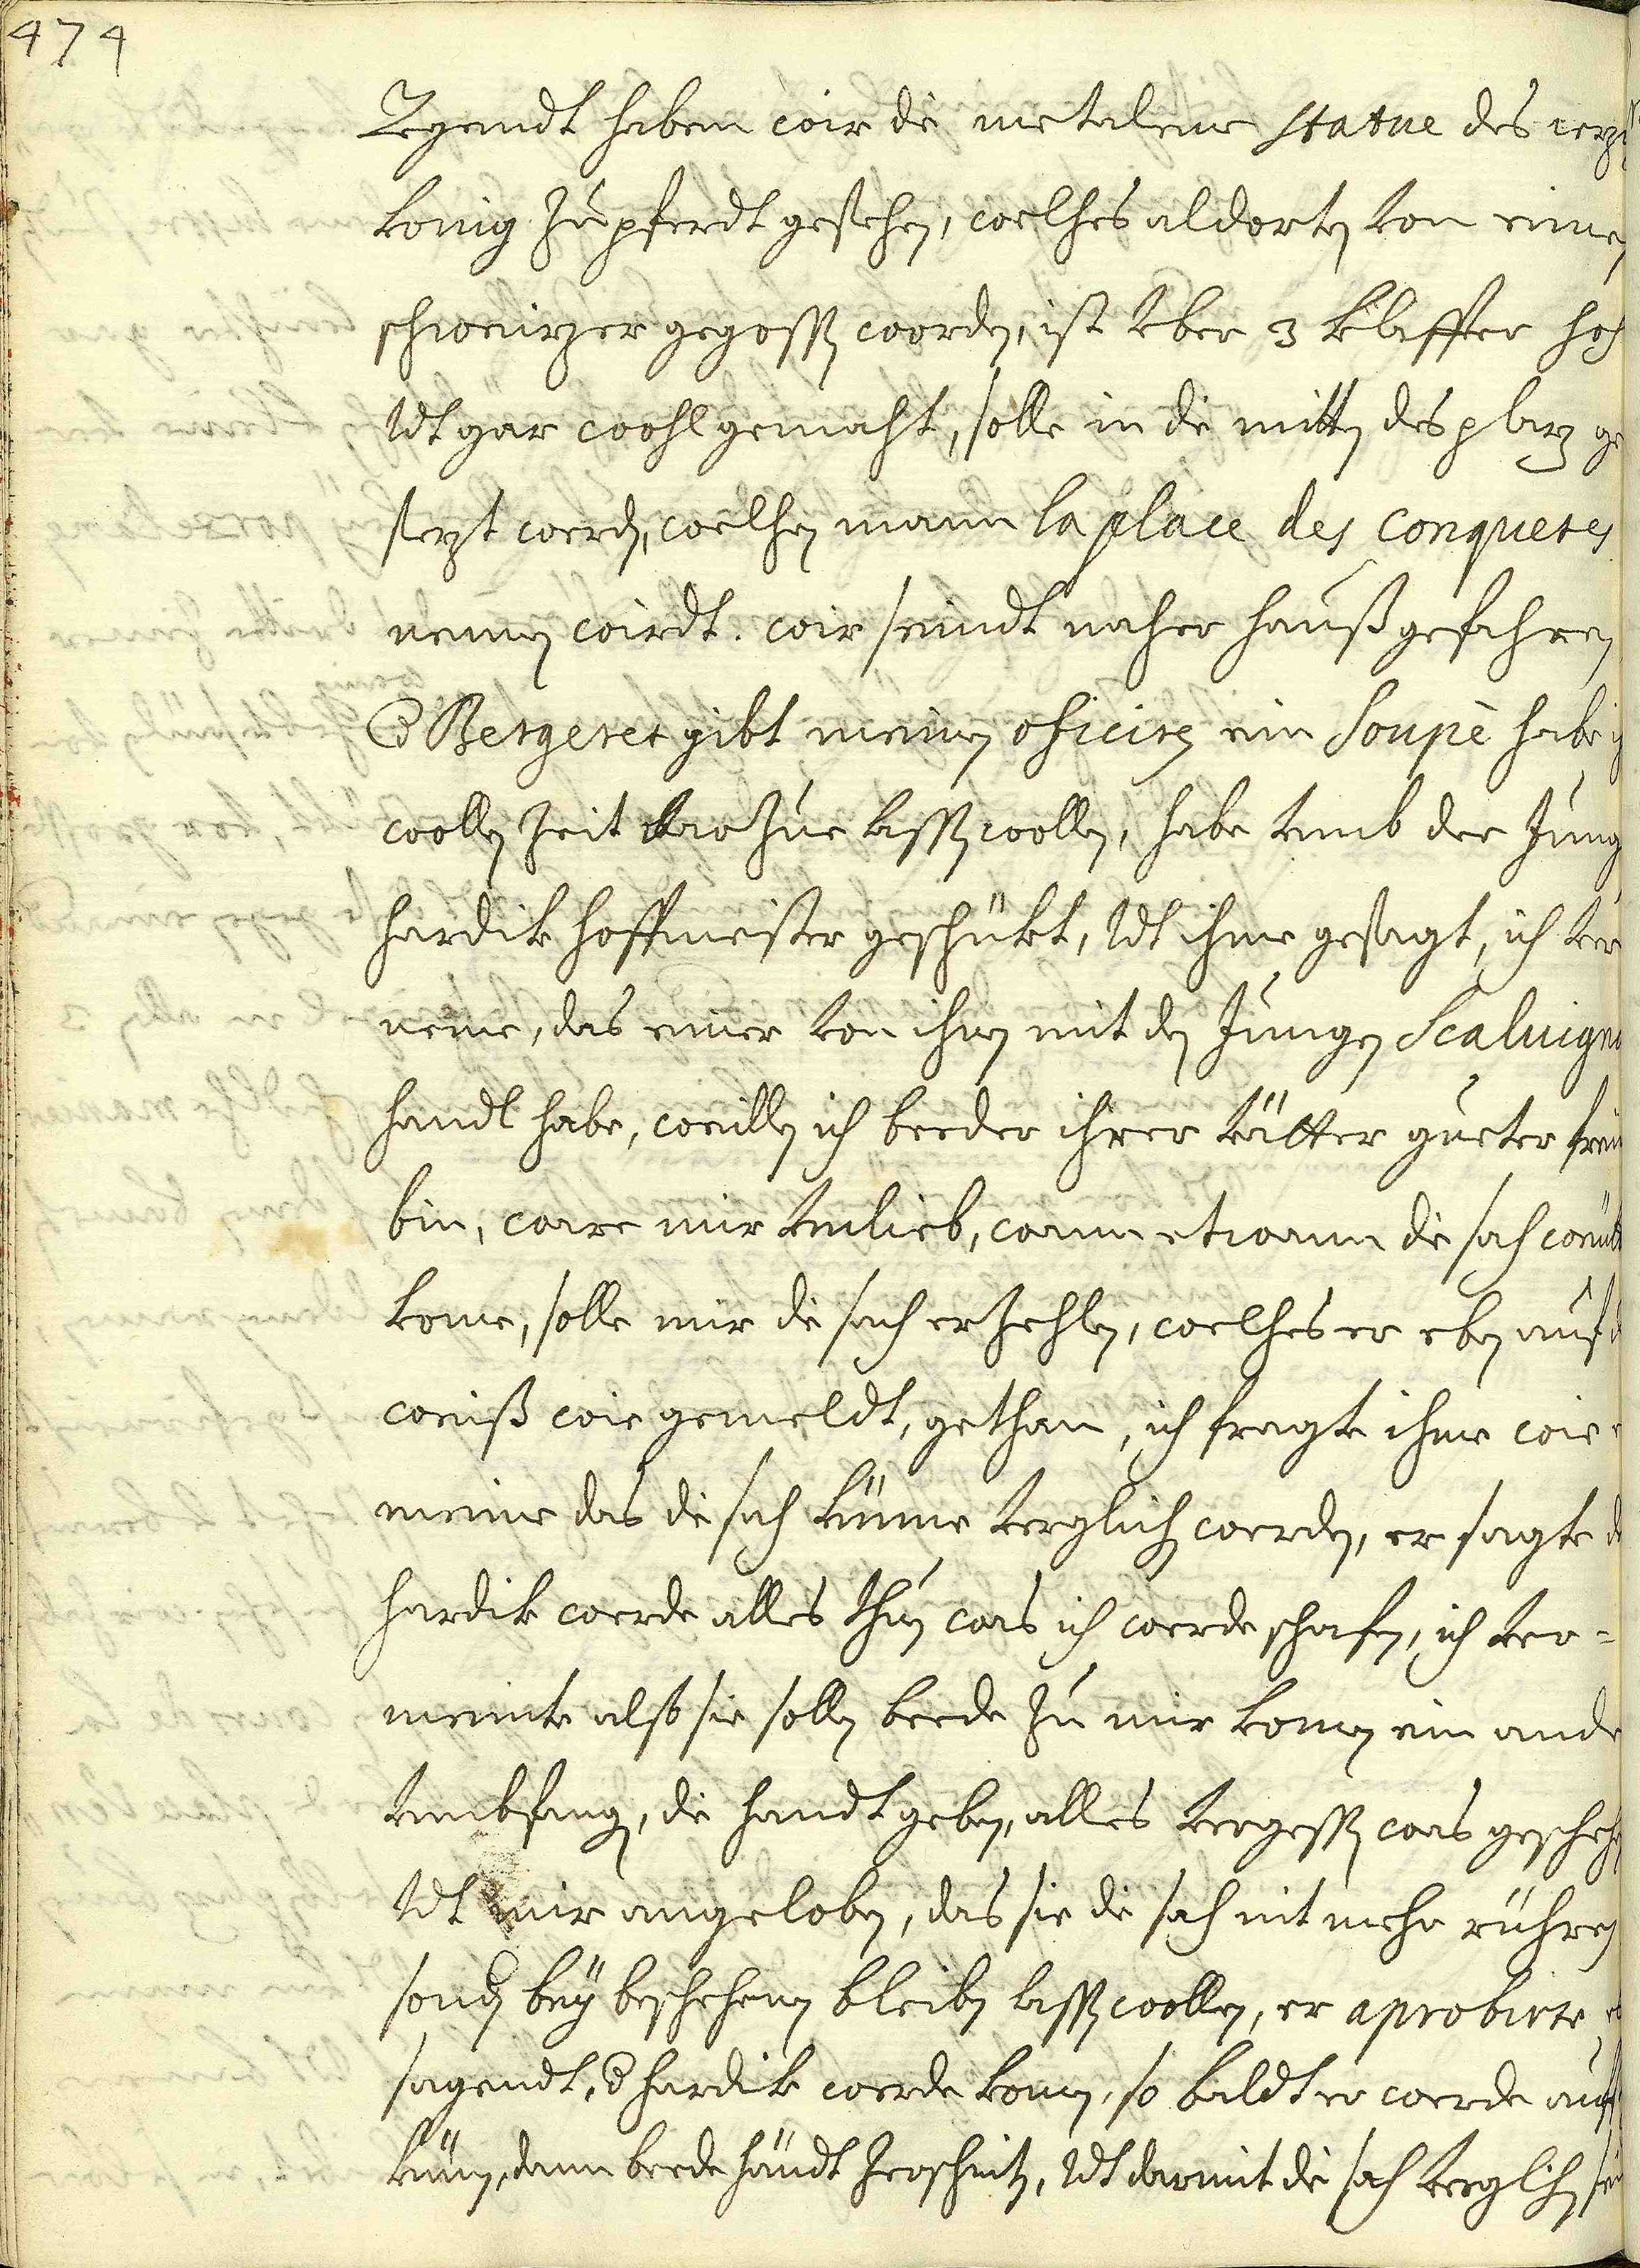 474
Legendt haben wir die metalene statue des iezi
König zu pferdt gesehen, welches aldorten von einen
schweitzer gegossen worden, ist vber 3 klaffter hoch
vndt gar wohl gemacht, solle in die mitten des platz ge
setzt werden, welchen mann la place des Conquetes
nennen wirdt. wir seindt naher hauß gefahren
Bergeret gibt meinen oficiren ein Soupè habe
wollen zeit darzue lassen wollen, habe vmb der Jung
hardik hoffmeister geschükt, vndt ihme gesagt, ich ver
neme, das einer von ihnen mit den Jungen Scalvigni
handl habe, weillen ich beeder ihrer vätter gueter freü
bin, ware mir vnlieb, wann etwann die sach weütt
kome, solle mir die sach erzehlen, welches er eben auf d
weiß wie gemeldt, gethan, ich fragte ihme wie
meine das die sach könne verglichen werden, er sagte d
hardik werde alles thun was ich werde schafen, ich ver=
meinte alß sie sollen beede zu mir komen ein ande
vmbfangen, die handt geben, alles vergessen was geschehen
vndt mir angeloben, das sie die sach nit mehr rühren
sondern bey beschehenen bleiben lassen wollen, er aprobirte es
sagendt, hardik werde komen, so baldt er werde auß
könen, dann beede händt zerschnitten, vndt darmit die sach verglichen sei